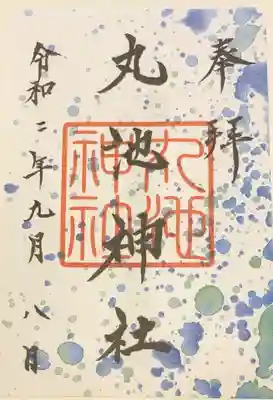 奉拝
丸池神社
丸池
神社
令和二年九月 八日